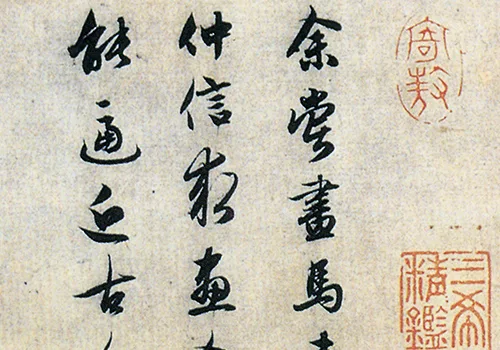 余嘗畫馬
仲信求畫
能逼近古
三希
精鑑